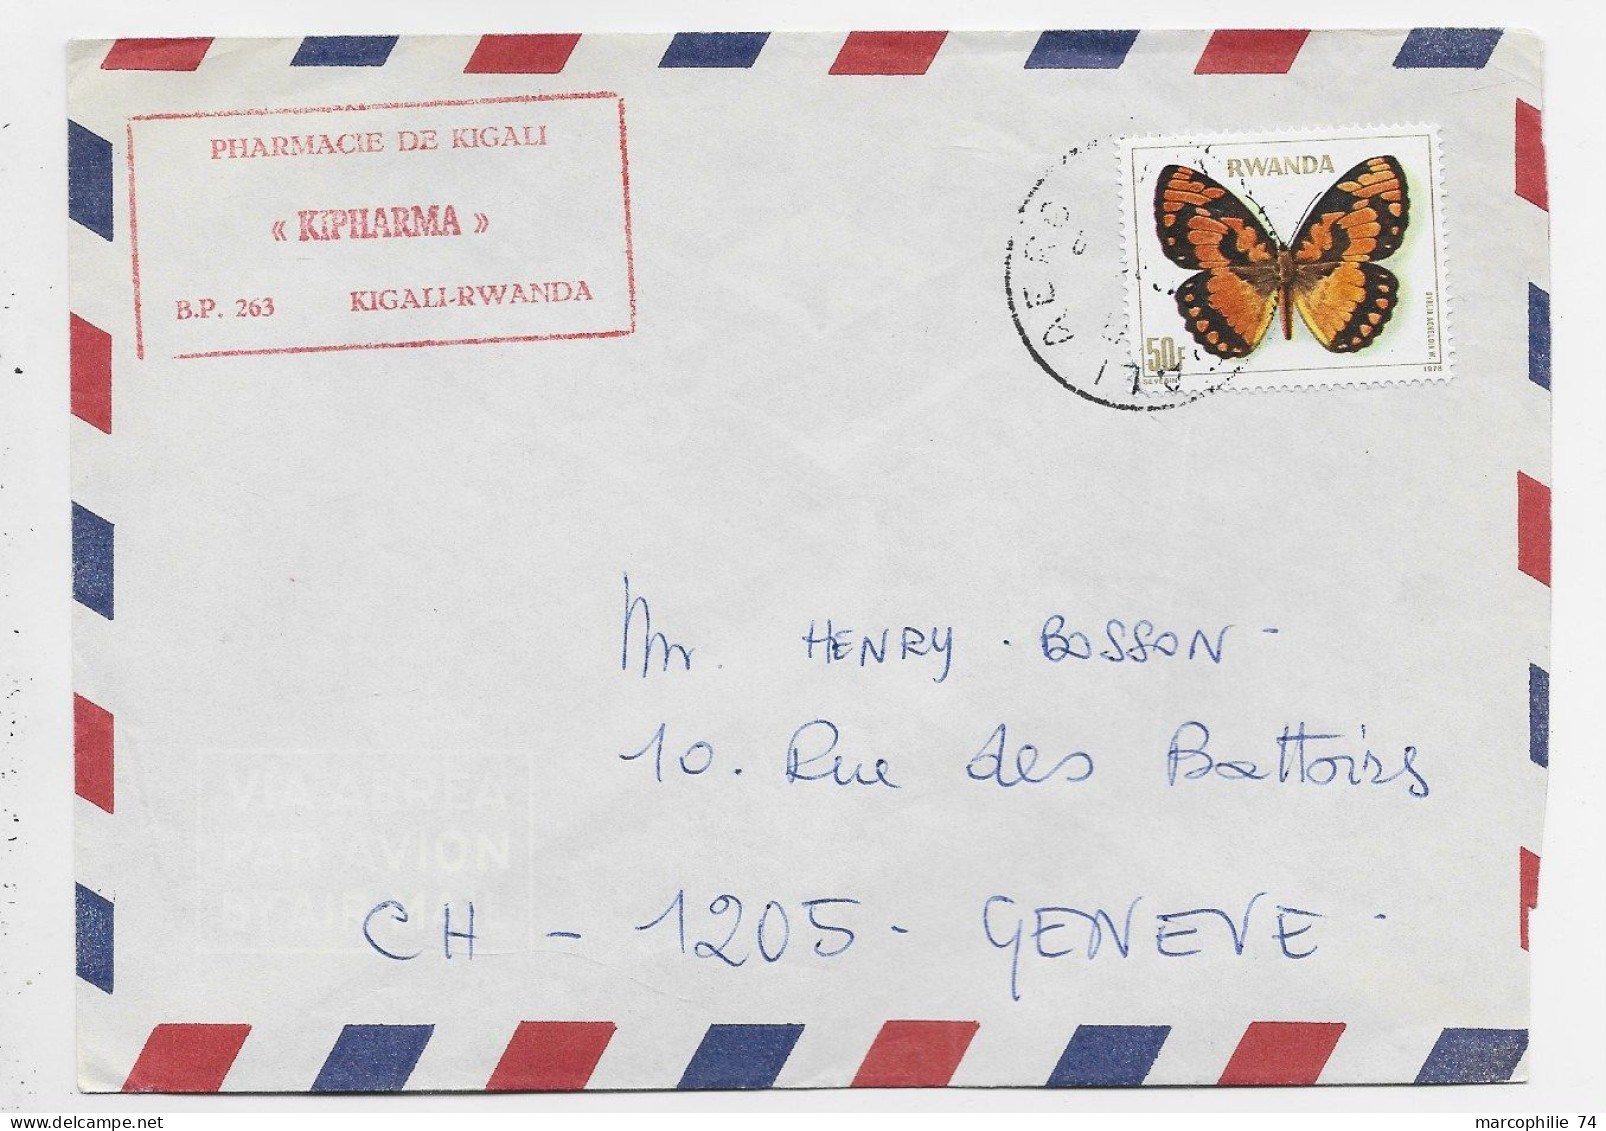 PHARMACIE DE KIGALI
« KIPHARMA »
B.P. 263 KIGALI-RWANDA
RWANDA
50F
SEVERIN
1978
AERO
Mr. HENRY. BOSSON -
10. Rue des Battoirs
CH - 1205 - GENEVE -
VIA AEREA
PAR AVION
BY AIR MAIL
marcophilie 74